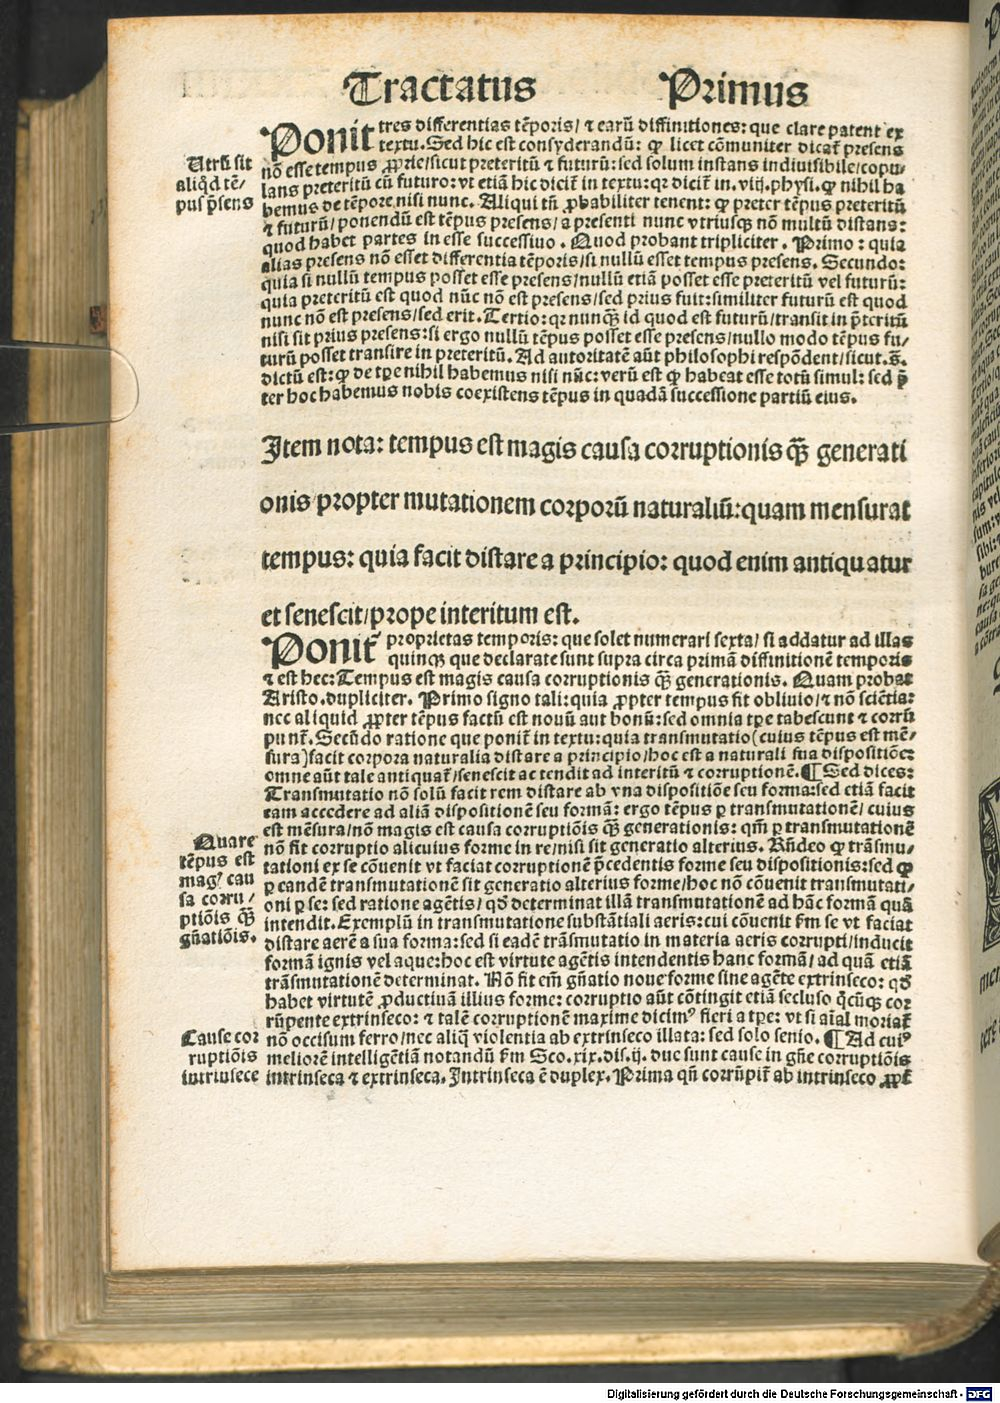 Tractatus Primus
Ponit tres differentias tēporis/ ⁊ earū diffinitiones: que clare patent ex
textu. Sed hic est consyderandū: ꝙ licet cōmuniter dicat᷑ presens
Utrū sit
aliqd tē/
pus p̄sens
nō esse tempus ꝓprie/sicut preteritū ⁊ futurū: sed solum instans indiuisibile/copu-
lans preteritū cū futuro: vt etiā hic dicit᷑ in textu: qꝛ dicit᷑ in. viij. physi. ꝙ nihil ha
bemus de tēpore nisi nunc. Aliqui tn̄ ꝓbabiliter tenent: ꝙ preter tēpus preteritū
⁊ futurū/ ponendū est tēpus presens/ a presenti nunc vtriusqꝫ nō multū distans:
quod habet partes in esse successiuo. Quod probant tripliciter. Primo: quia
alias presens nō esset differentia tēporis/si nullū esset tempus presens. Secundo:
quia si nullū tempus posset esse presens/nullū etiā posset esse preteritū vel futurū:
quia preteritū est quod nūc nō est presens/sed prius fuit: similiter futurū est quod
nunc nō est presens/sed erit. Tertio: qꝛ nunqꝫ̄ id quod est futurū/transit in p̄teritū
nisi sit prius presens: si ergo nullū tēpus posset esse presens/nullo modo tēpus fu/
turū posset transire in preteritū. Ad autoritatē aūt philosophi respōdent/sicut. s̄.
dictū est: ꝙ de tꝑe nihil habemus nisi nūc: verū est ꝙ habeat esse totū simul: sed p̄
ter hoc habemus nobis coexistens tēpus in quadā successione partiū eius.
Item nota: tempus est magis causa corruptionis qꝫ̄ generati
onis propter mutationem corporū naturaliū: quam mensurat
tempus: quia facit distare a principio: quod enim antiquatur
et senescit/prope interitum est.
Ponit᷑ proprietas temporis: que solet numerari sexta/ si addatur ad illas
quinqꝫ que declarate sunt supra circa primā diffinitionē temporis
⁊ est hec: Tempus est magis causa corruptionis qꝫ̄ generationis. Quam probat
Aristo. dupliciter. Primo signo tali: quia ꝓpter tempus fit obliuio/ ⁊ nō sciētia:
nec aliquid ꝓpter tēpus factū est nouū aut bonū: sed omnia tꝑe tabescunt ⁊ corrū
punt᷑. Secūdo ratione que ponit᷑ in textu: quia transmutatio (cuius tēpus est mē/
sura) facit corpora naturalia distare a principio/hoc est a naturali sua dispositiōe:
omne aūt tale antiquat᷑/senescit ac tendit ad interitū ⁊ corruptionē. ¶ Sed dices:
Transmutatio nō solū facit rem distare ab vna dispositiōe seu forma: sed etiā facit
eam accedere ad aliā dispositionē seu formā: ergo tēpus ꝑ transmutationē/ cuius
est mēsura/nō magis est causa corruptiōis qꝫ̄ generationis: qm̄ ꝑ transmutationē
Quare
tēpus est
magꝰ cau
sa corru/
ptiōis qꝫ̄
gn̄atiōis.
nō fit corruptio alicuius forme in re/nisi sit generatio alterius. Rn̄deo ꝙ trāsmu/
tationi ex se cōuenit vt faciat corruptionē p̄cedentis forme seu dispositionis: sed ꝙ
ꝑ eandē transmutationē sit generatio alterius forme/hoc nō cōuenit transmutati/
oni ꝑ se: sed ratione agētis/ qd̄ determinat illā transmutationē ad hāc formā quā
intendit. Exemplū in transmutatione substātiali aeris: cui cōuenit fm̄ se vt faciat
distare aerē a sua forma: sed si eadē trāsmutatio in materia aeris corrupti/inducit
formā ignis vel aque: hoc est virtute agētis intendentis hanc formā/ ad quā etiā
trāsmutationē determinat. Nō fit em̄ gn̄atio noue forme sine agēte extrinseco: qd̄
habet virtutē ꝓductiuā illius forme: corruptio aūt cōtingit etiā secluso qcūqꝫ cor
rūpente extrinseco: ⁊ talē corruptionē maxime dicimꝰ fieri a tꝑe: vt si aīal moriat᷑
Cause cor
ruptiōis
intrinsece
nō occisum ferro/nec aliq̄ violentia ab extrinseco illata: sed solo senio. ¶ Ad cuiꝰ
meliorē intelligētiā notandū fm̄ Sco. xix. dis. ij. due sunt cause in gn̄e corruptiōis
intrinseca ⁊ extrinseca. Intrinseca ē duplex. Prima qn̄ corrūpit᷑ ab intrinseco ꝓpt᷑
Digitalisierung gefördert durch die Deutsche Forschungsgemeinschaft - DFG